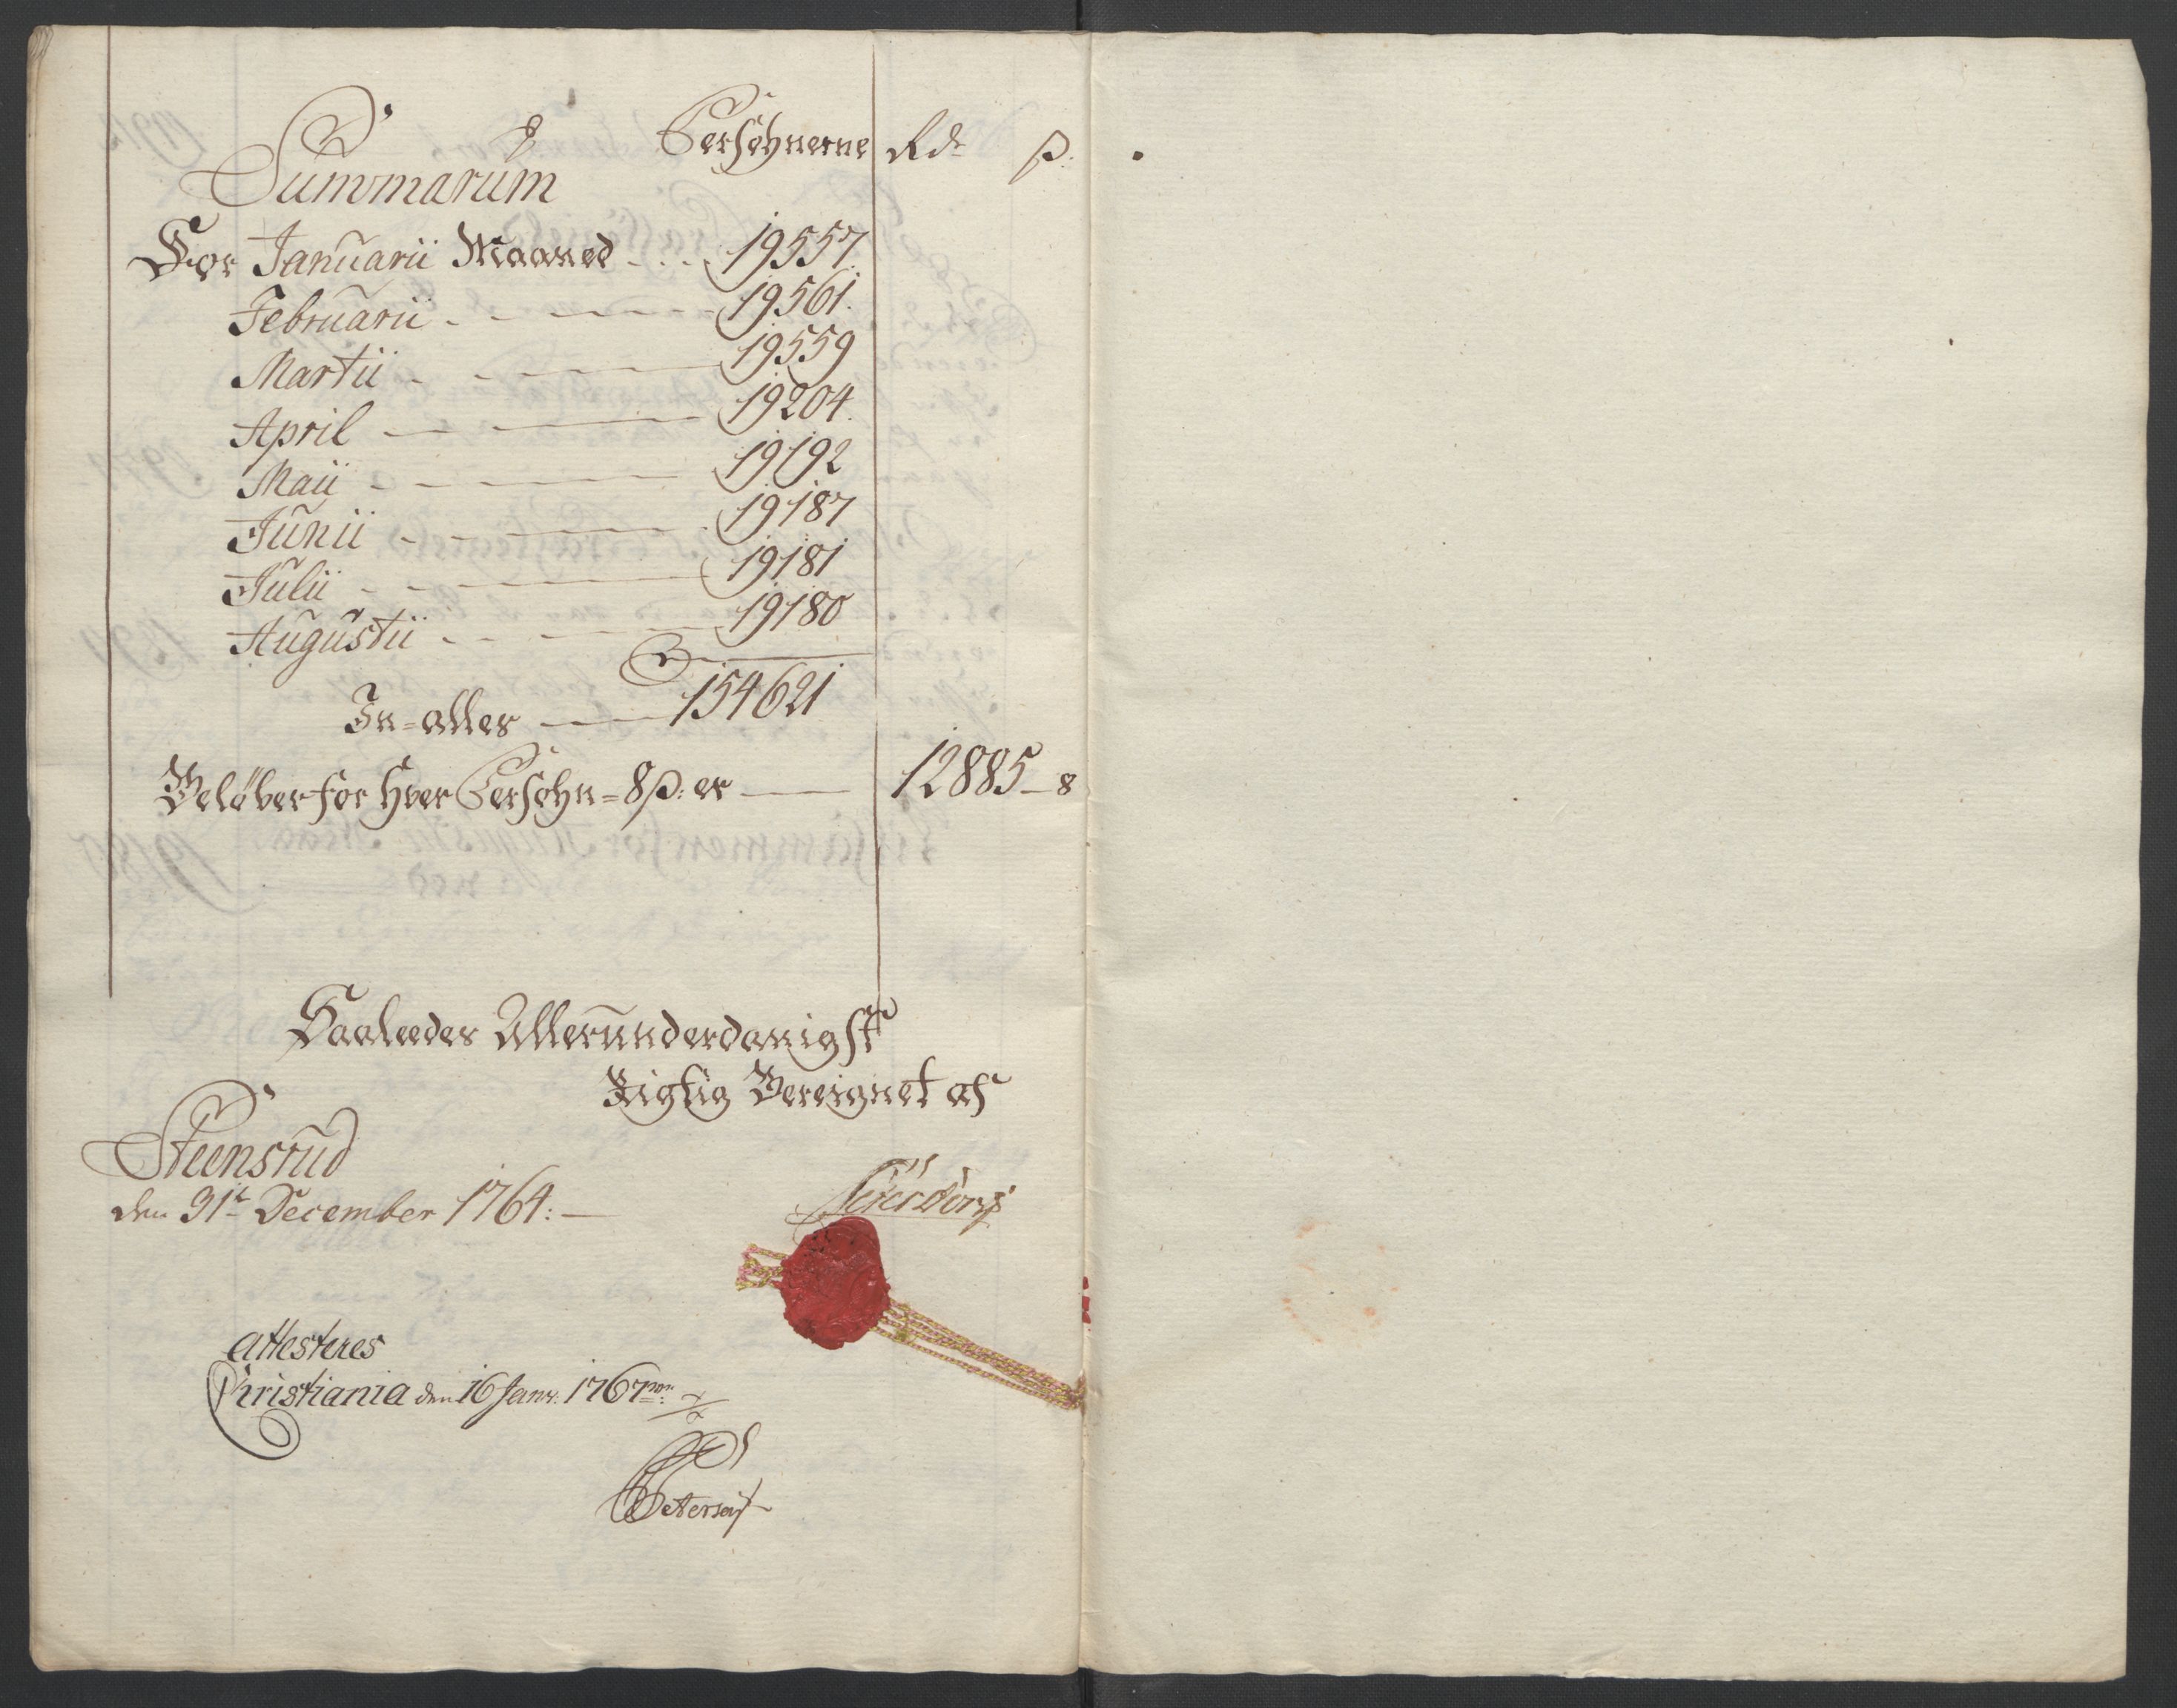 Persohnerne Rd. ß.
Summarum
For Januarii Maaned - - - 19557.
Februarii - - - - 19561.
Martii - - - - 19559
April - - - 19204.
Maii - - - - 19192
Junii - - - - 19187
Julii - - - - 19181
Augustii - - - - 19180
In-alles - 154621
Beløber for Hver Persohn = 8 ß: er - 12885 - 8
Saaledes Allerunderdanigst
Rigtig Beregnet af
Steensrud
den 31te December 1764: -
attesteres
Christiania den 16 Janr. 1767